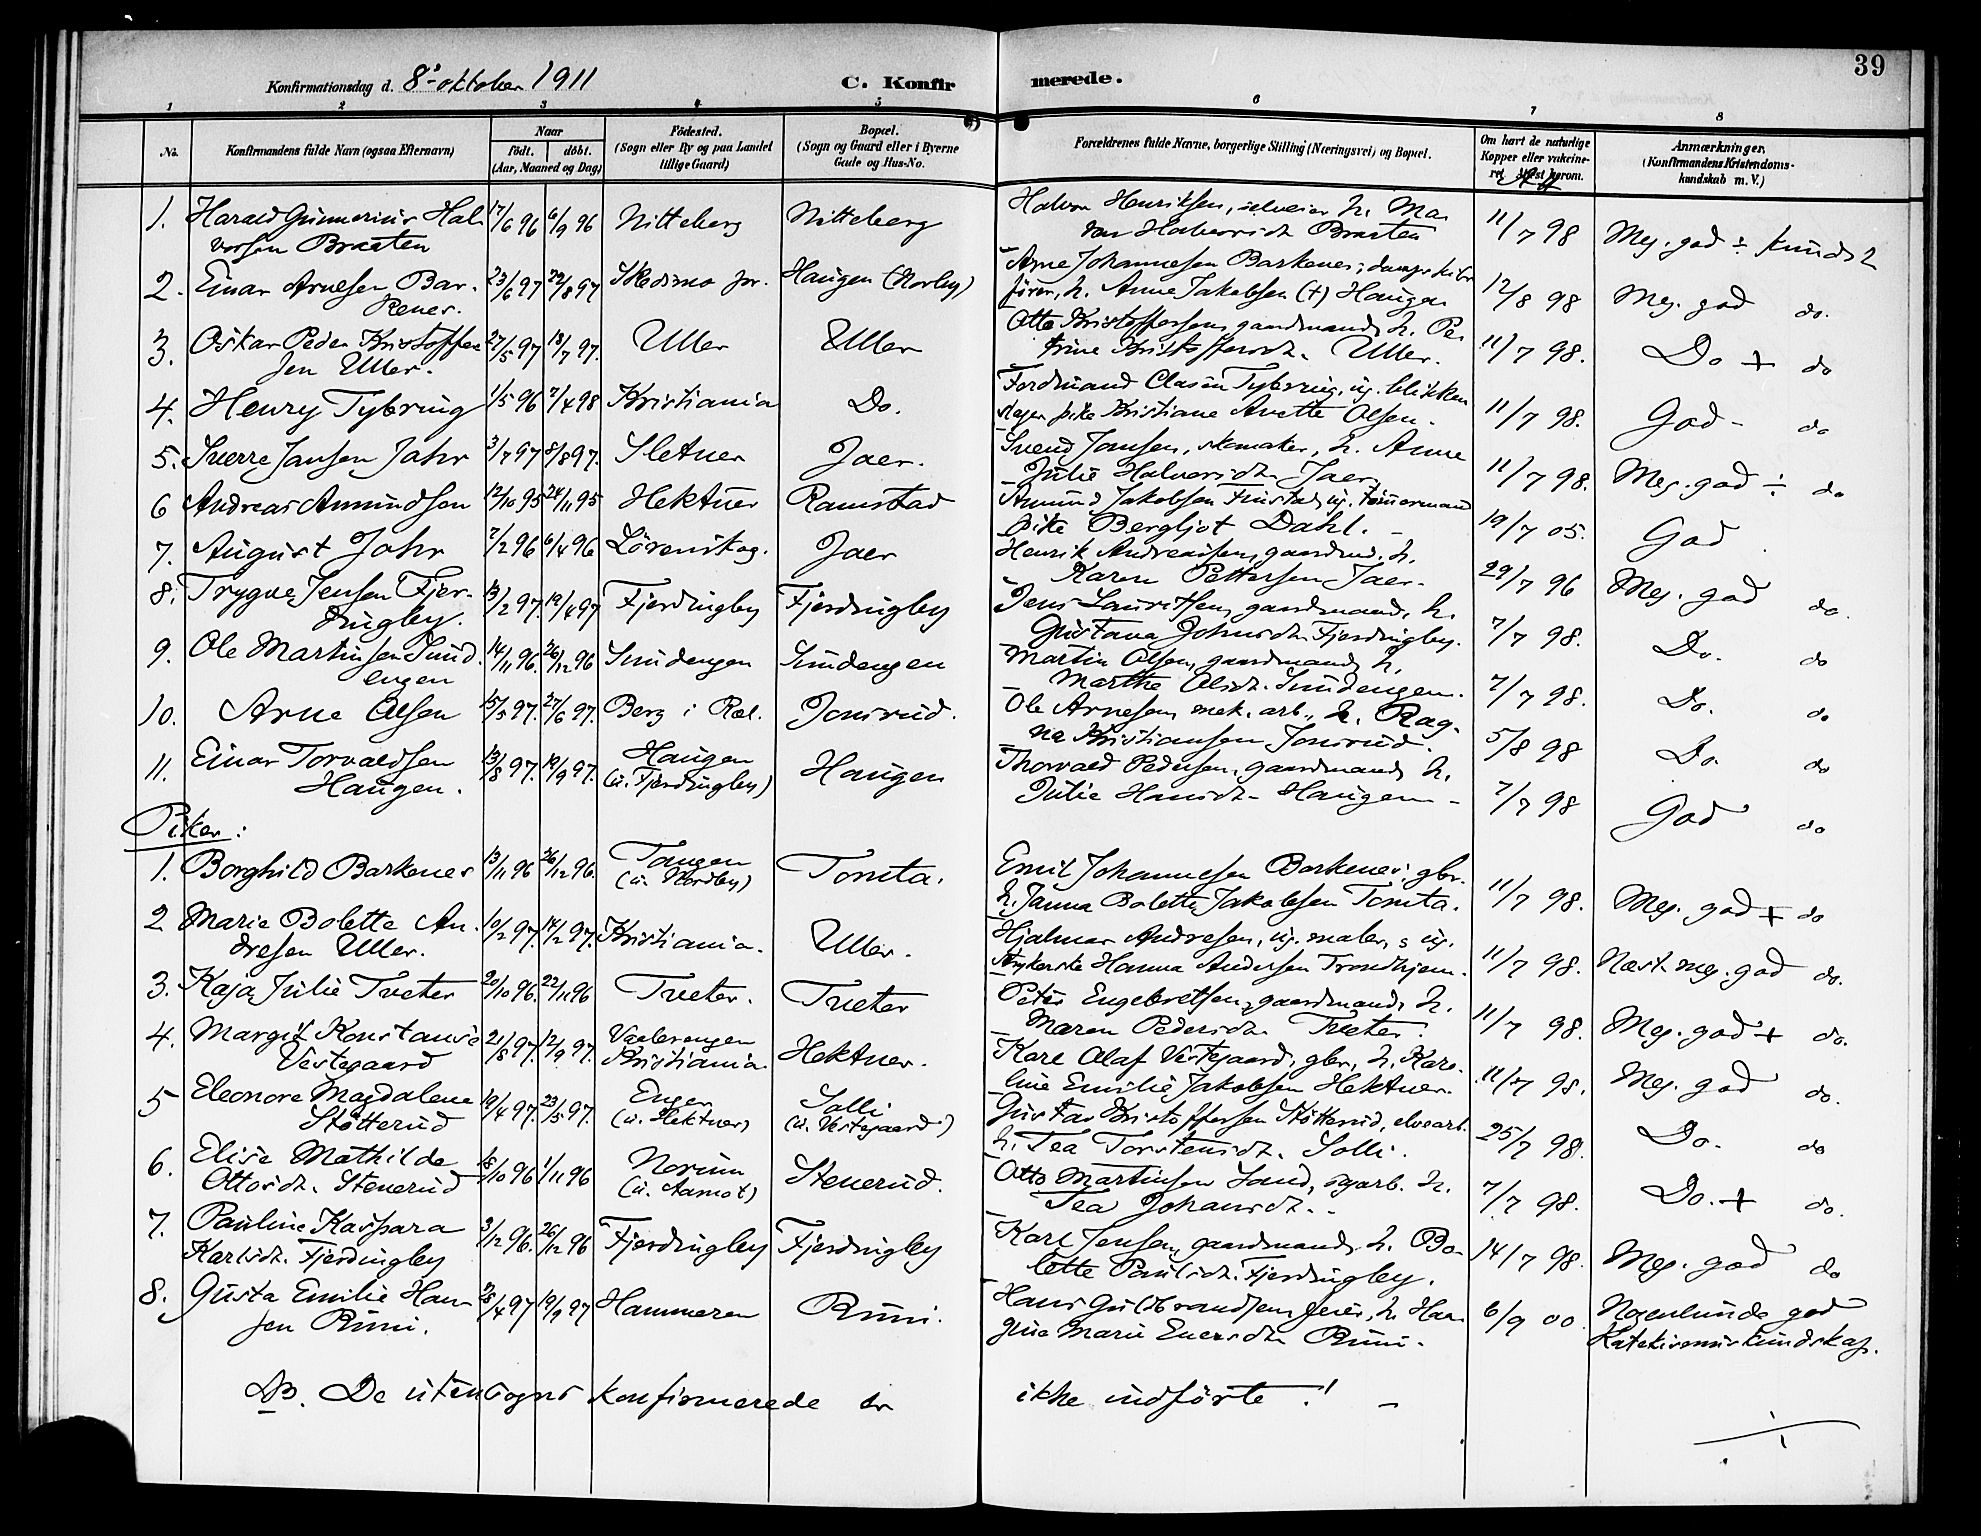 39
Konfirmationsdag d. 8de oktober 1911 C. Konfirmerede.
1 2 3 4 5 6 7 8
No. Konfirmandens fulde Navn (ogsaa Efternavn) Naar født. døbt. (Aar, Maaned og Dag) Födested. (Sogn eller By og paa Landet tillige Gaard) Bopæl. (Sogn og Gaard eller i Byerne Gade og Hus-No. Forældrenes fulde Navne, borgerlige Stilling (Næringsvei) og Bopæl. Om havt de naturlige Kopper eller vakcineret. Attest herom. Anmærkninger. (Konfirmandens Kristendomskundskab m. V.)
1. Harald Gunnerius Hal- 17/6 96 6/9 96 Nitteberg Nitteberg Halvor Henriksen, selveier h. Ma- 11/7 98 Meg. god ÷ kundsk
vorsen Braaten Halvorsdt. Braaten
2. Einar Arnesen Bar- 23/6 97 22/8 97 Skedsmo pr. Haugen (Norby) Arne Johannesen Barkenes, dampskibs- 12/8 98 Meg. god do.
kenes. fører, h. Anne Jakobsen (+) Haugen
3. Oskar Peder Kristoffer- 27/5 97 18/7 97. Uller Uller Otto Kristoffersen, gaardmand, h. Pe- 11/7 98. Do + do
sen Uller. trine Kristoffersdt. Uller.
4. Henry Tybring 1/5 96 7/4 98 Kristiania Do. Ferdinand Clasen Tybring, ug. blikken- 11/7 98. God - do
slager pike Kristiane Anette Olsen.
5. Sverre Jansen Jahr 3/7 97 8/8 97. Sletner Jaer. Svend Jansen, skomaker, h. Anne 11/7 98. Meg. god ÷ do
Julie Halvorsdt. Jaer.
6 Andreas Amundsen 12/10 95 24/11 95 Hektner Ramstad Amund Jakobsen Finstad, ug. tømermand 19/7 05. God
pike Bergljot Dahl. -
7. August Jahr 7/2 96 6/4 96 Lørenskog. Jaer Henrik Andreassen, gaardmd. h. 29/7 96 Meg. god do.
Karen Pettersen Jaer.
8. Trygve Jensen Fjer- 13/2 97. 19/4 97 Fjerdingby Fjerdingby Jens Lauritsen, gaardmand, h. 7/7 98. Do. do
dingby. Gustava Johnsdt. Fjerdingby.
9. Ole Martinsen Smid 14/11 96. 26/12 96 Smidengen Smidengen Martin Olsen, gaardmand, h. 7/7 98. Do. do
engen Marthe Olsdt. Smidengen.
10. Arne Olsen 15/5 97. 27/6 97. Berg i Ræl. Jonsrud. Ole Arnesen, mek. arb., h. Rag- 5/8 98 Do. do
na Kristiansen Jonsrud.
11. Einar Torvaldsen 13/8 97. 19/9 97. Haugen Haugen Thorvald Pedersen, gaardmand, h. 7/7 98 God do
Haugen. (u. Fjerdingby) Julie Hansdt. Haugen -
Piker:
1. Borghild Barkenes 13/11 96 26/12 96. Tangen (u. Nordby) Tomta. Emil Johannesen Barkenes, gbr. 11/7 98. Meg. god + do
h. Janna Bolette Jakobsen Tomta.
2 Marie Bolette An- 10/2 97. 14/2 97. Kristiania. Uller. Hjalmar Andresen, ug. maler, s ug. 11/7 98. Næst. meg. god do.
dresen Uller. strykerske Hanna Andersen Trondhjem.
3. Kaja Julie Tveter 20/10 96. 22/11 96 Tveter. Tveter Peter Engebretsen, gaardmand, h. 11/7 98. Meg. god + do.
Maren Pedersdt. Tveter.
4. Margit Konstanse 21/8 97. 12/9 97. Vaalerengen Hektner. Karl Olaf Vestegaard, gbr, h. Karo- 11/7 98. Meg. god do.
Vestegaard Kristiania. line Emilie Jakobsen Hektner.
5 Eleonore Magdalene 19/4 97. 23/5 97. Enger Solli Gustav Kristoffersen Støtterud, elvearb. 25/7 98. Do. do
Støtterud (u. Hektner) (u. Vestegaard) h. Tea Torstensdt. Solli.
6. Elise Mathilde 18/10 96 1/11 96 Norum Stenerud. Otto Martinsen Sand, sgarb. h. 7/7 98. Do. + do.
Ottosdt. Stenerud (u. Aamot) Tea Johansdt. -
7. Pauline Kaspara 3/12 96. 26/12 96 Fjerdingby Fjerdingby Karl Jensen, gaardmand, h. Bo- 14/7 98. Meg. god do
Karlsdt. Fjerdingby lette Paulsdt. Fjerdingby.
8. Gusta Emilie Han- 28/4 97 19/9 97 Hammeren Runi. Hans Guldbrandsen, h. Han- 6/9 00. Nogenlunde god
sen Runi. gine Marie Evensdt. Runi. Katekismuskundskap.
NB. De utensogns konfirmerede er ikke indførte! -